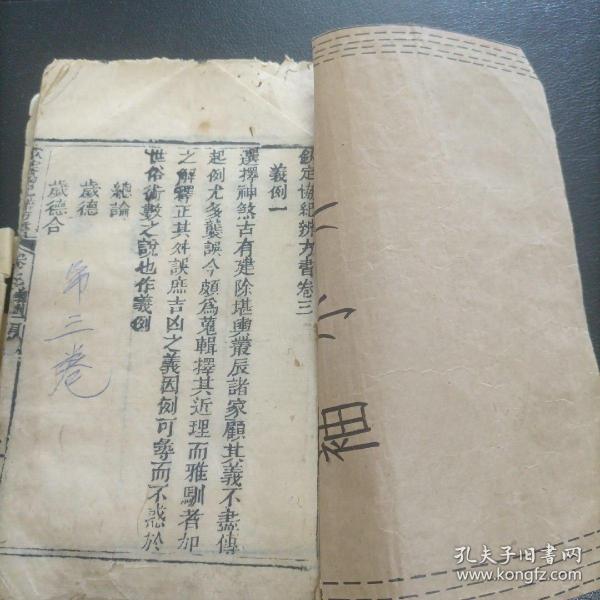 欽定協紀辨方書卷三
義例一
選擇神煞古有建除堪輿叢辰諸家顧其義不盡傳
起例尤多襲誤今頗為蒐輯擇其近理而雅馴者加
之解釋正其舛誤庶吉凶之義因例可彰而不惑於
世俗術數之說也作義例
總論
歲德
歲德合
第三卷
小
袖
孔夫子旧书网
www.kongfz.com